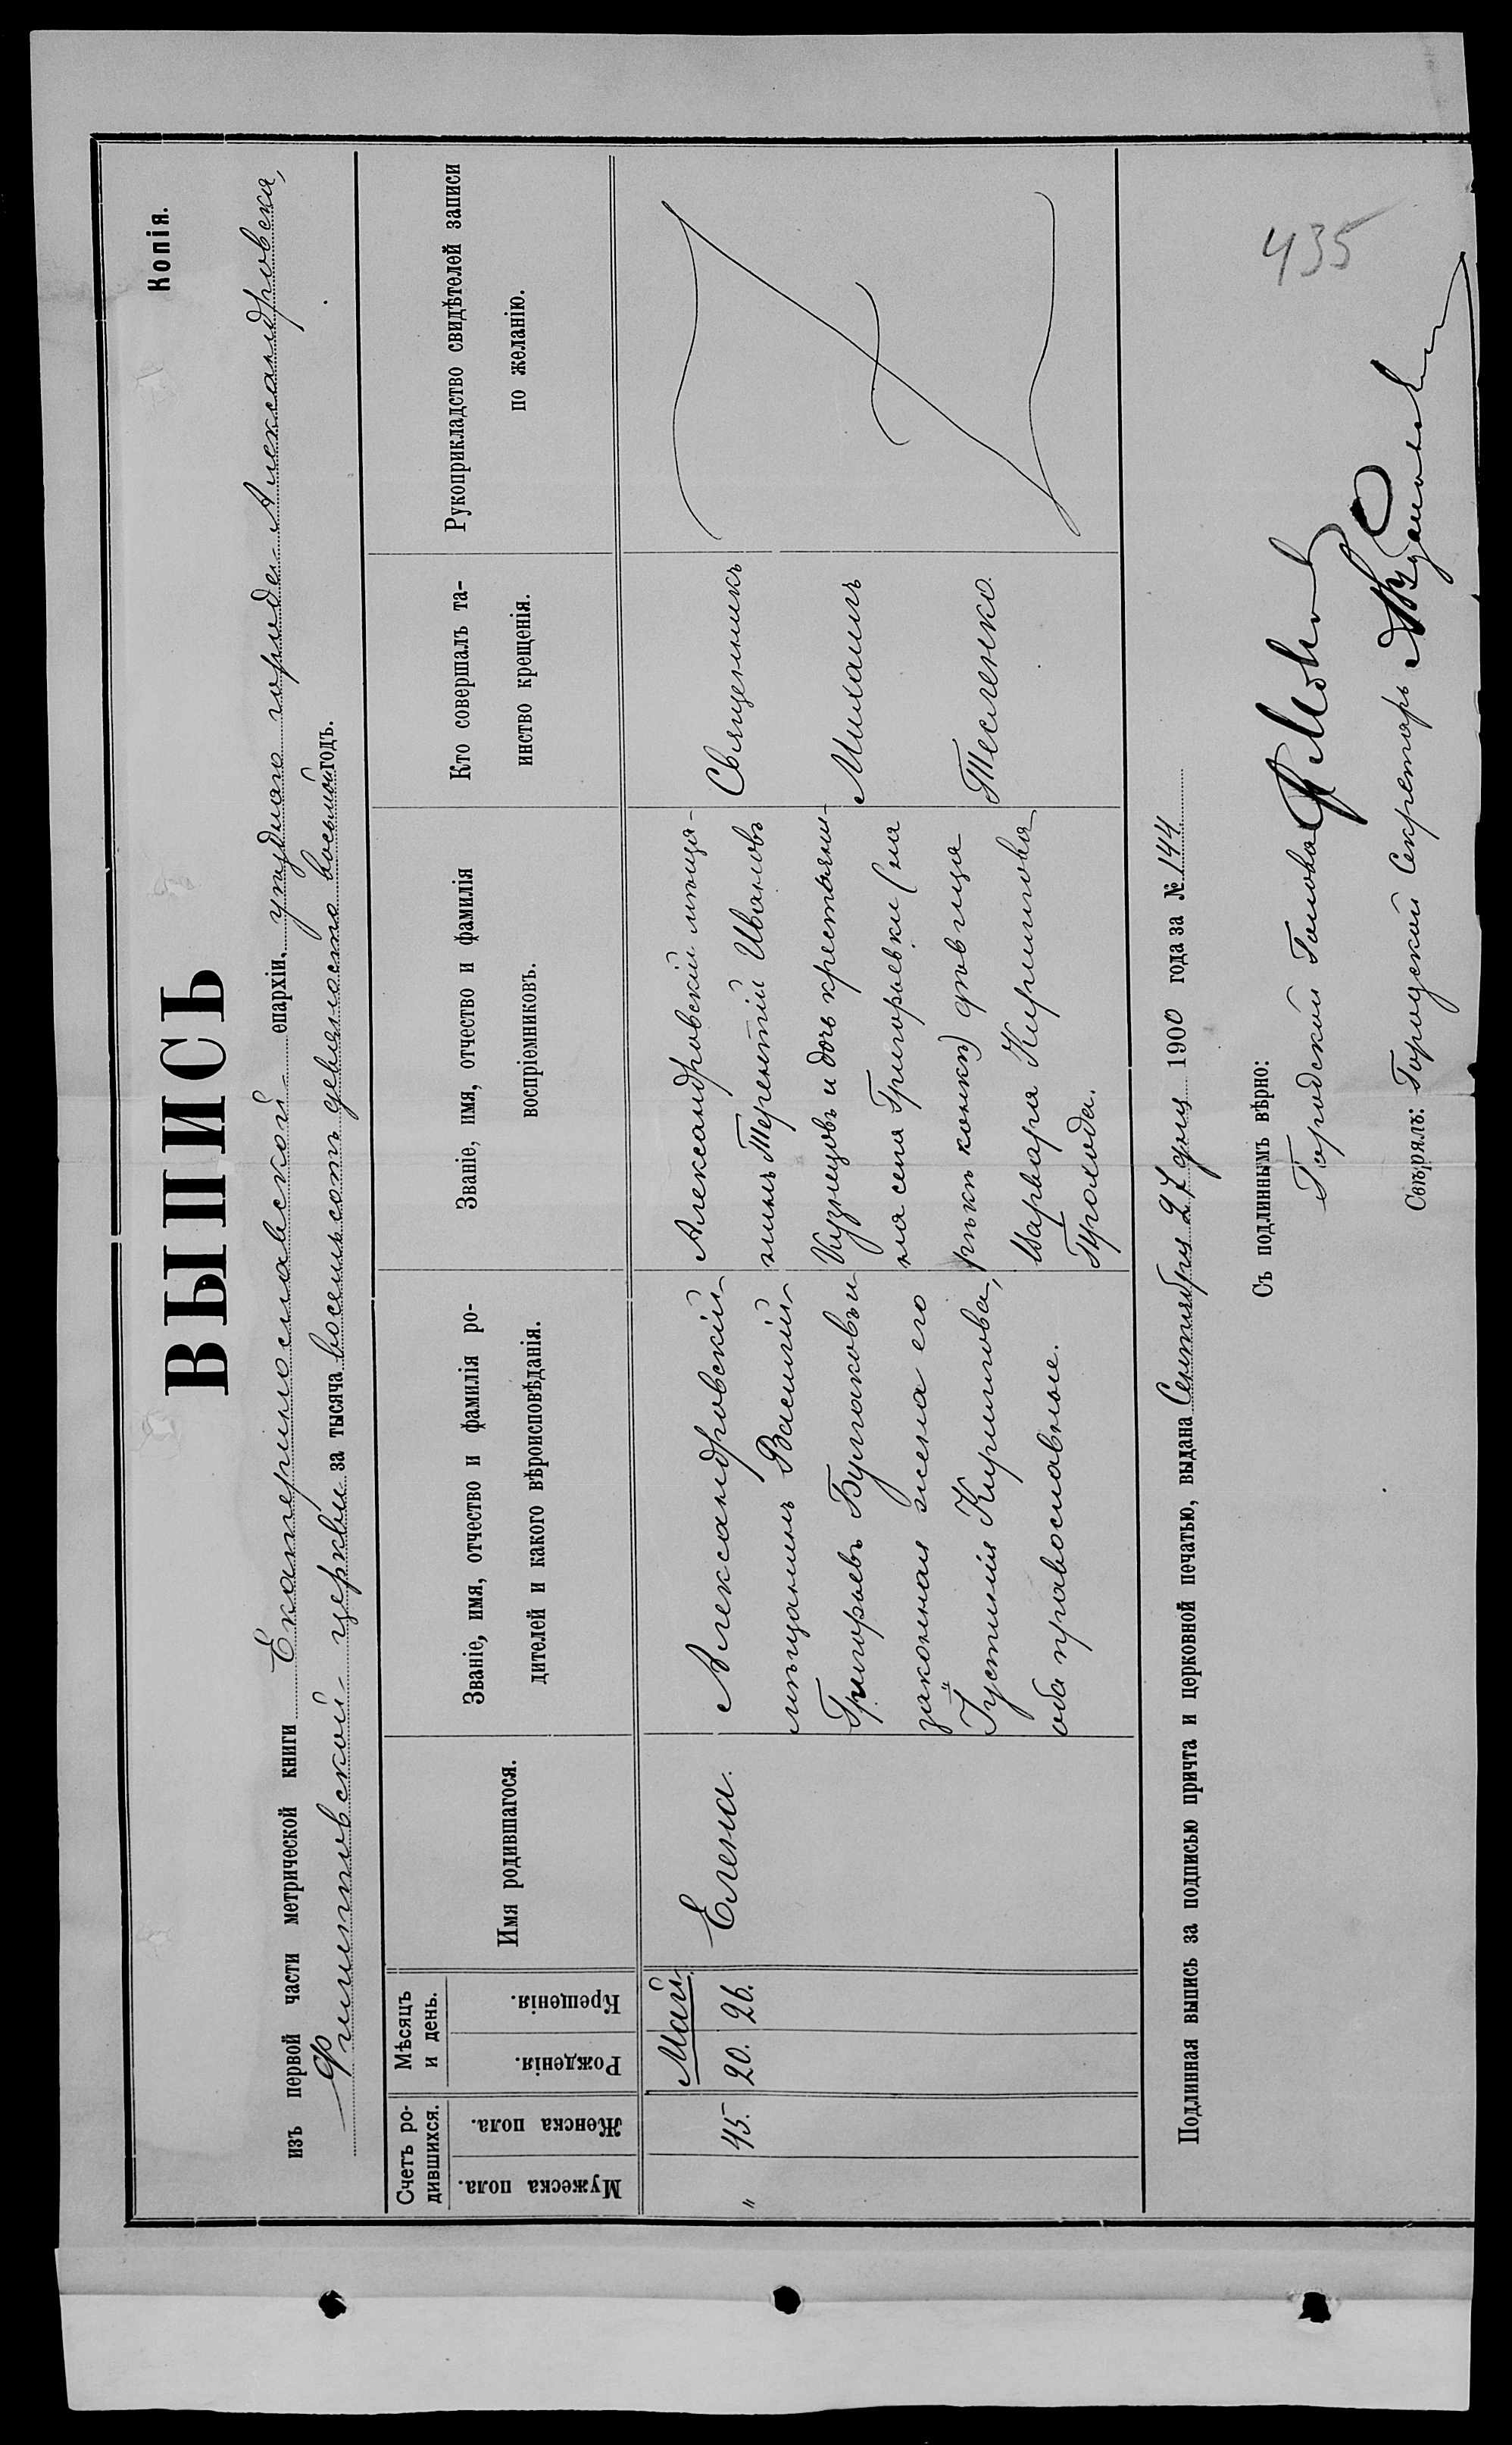 Копія.
ВЫПИСЬ
изъ первой части метрической книги Екатеринославской епархіи, уѣзднаго города Александровска,
Филипповской церкви за тысяча восемьсотъ девяносто восьмой годъ.
Счетъ ро-
дившихся.
Мужеска пола.
Женска пола.
Мѣсяцъ
и день.
Рожденія.
Крещенія.
Имя родившагося.
Званіе, имя, отчество и фамилія ро-
дителей и какого вѣроисповѣданія.
Званіе, имя, отчество и фамилія
воспріемниковъ.
Кто совершалъ та-
инство крещенія.
Рукоприкладство свидѣтелей записи
по желанію.
"
45.
Май
20. 26.
Елена.
Александровскій
мѣщанинъ Василій
Григорьевъ Булгаковъ и
законная жена его
Іустинія Кириллова,
оба православные.
Александровскій мѣща-
нинъ Терентій Ивановъ
Кузнецовъ и дочь крестьяни-
на села Григорьевки (на
рѣкѣ конкѣ) дѣвица
Варвара Кириллова
Прохода.
Священникъ
Михаилъ
Тесленко.
Подлинная выпись за подписью причта и церковной печатью, выдана Сентября 27 дня 1900 года за № 144
Съ подлиннымъ вѣрно:
Городской Голова
Свѣрялъ: Городской Секретарь
435